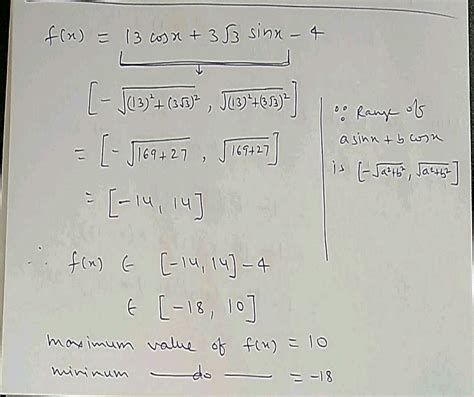 f(x) = 13 cosx + 3√3 sinx - 4
[-√((13)²+(3√3)²) , √((13)²+(3√3)²)]
= [-√(169+27) , √(169+27)]
= [-14, 14]
∵ Range of
a sinx + b cosx
is [-√(a²+b²), √(a²+b²)]
∴ f(x) ∈ [-14, 14] - 4
∈ [-18, 10]
maximum value of f(x) = 10
minimum — do — = -18